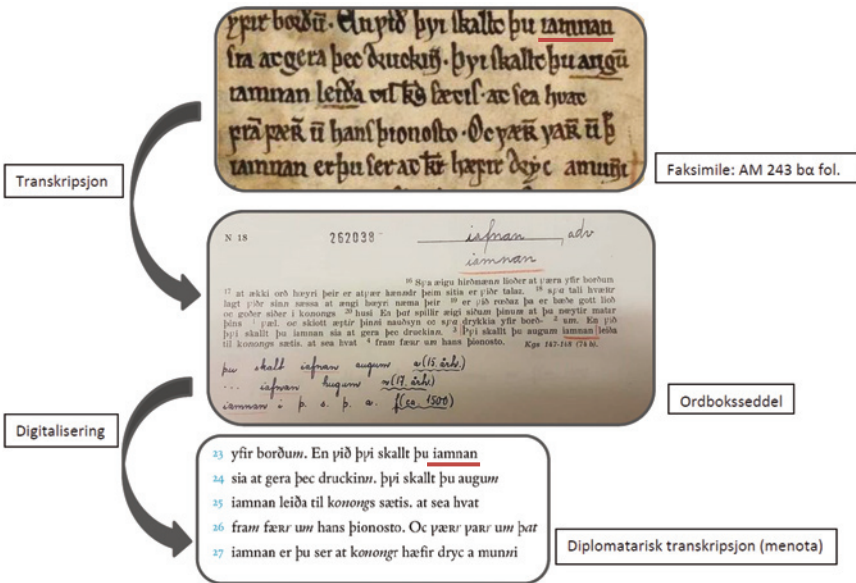 yfir borðū. En ƿið þƿi skallt þu iamnan
sia at gera þec druckin̄. þƿi skallt þu augū
iamnan leiða til kḡs sætis. at sea huat
frā færr ū hans þionosto. Oc ƿærr ƿarr ū þ̄
iamnan er þu ser at kr̄ hæfir dryc a mun̄i
Transkripsjon
Faksimile: AM 243 bα fol.
N 18 262038 iafnan, adv
iamnan
16 Sƿa æigu hirðmænn lioðer at ƿæra yfir borðum
17 at ækki orð hœyri þeir er atƿær hændr þeim sitia er ƿiðr talaz. 18 sƿa tali hvætir
lagt ƿiðr sinn sæssa at ængi hœyri næma þeir 19 er ƿið rœðaz þa er bæðe gott lioð
oc goðer siðer i konongs 20 husi En þat spillir æigi siðum þinum at þu nœytir matar
þins 1 ƿæl. oc skiott æptir þinni nauðsyn oc sƿa drykkia yfir borð- 2 um. En ƿið
þƿi skallt þu iamnan sia at gera þec druckinn. 3 þƿi skallt þu augum iamnan leiða
til konongs sætis. at sea hvat 4 fram fær um hans þionosto. Kgs 147-148 (74 bl.
þu skalt iafnan augum a (15. årh.)
... iafnan hugum n (17. årh.)
iamnan i þ. s. þ. a. f (ca. 1500)
Ordboksseddel
Digitalisering
23 yfir borðum. En ƿið þƿi skallt þu iamnan
24 sia at gera þec druckinn. þƿi skallt þu augum
25 iamnan leiða til konongs sætis. at sea hvat
26 fram færr um hans þionosto. Oc ƿærr ƿarr um þat
27 iamnan er þu ser at konongr hæfir dryc a munni
Diplomatarisk transkripsjon (menota)